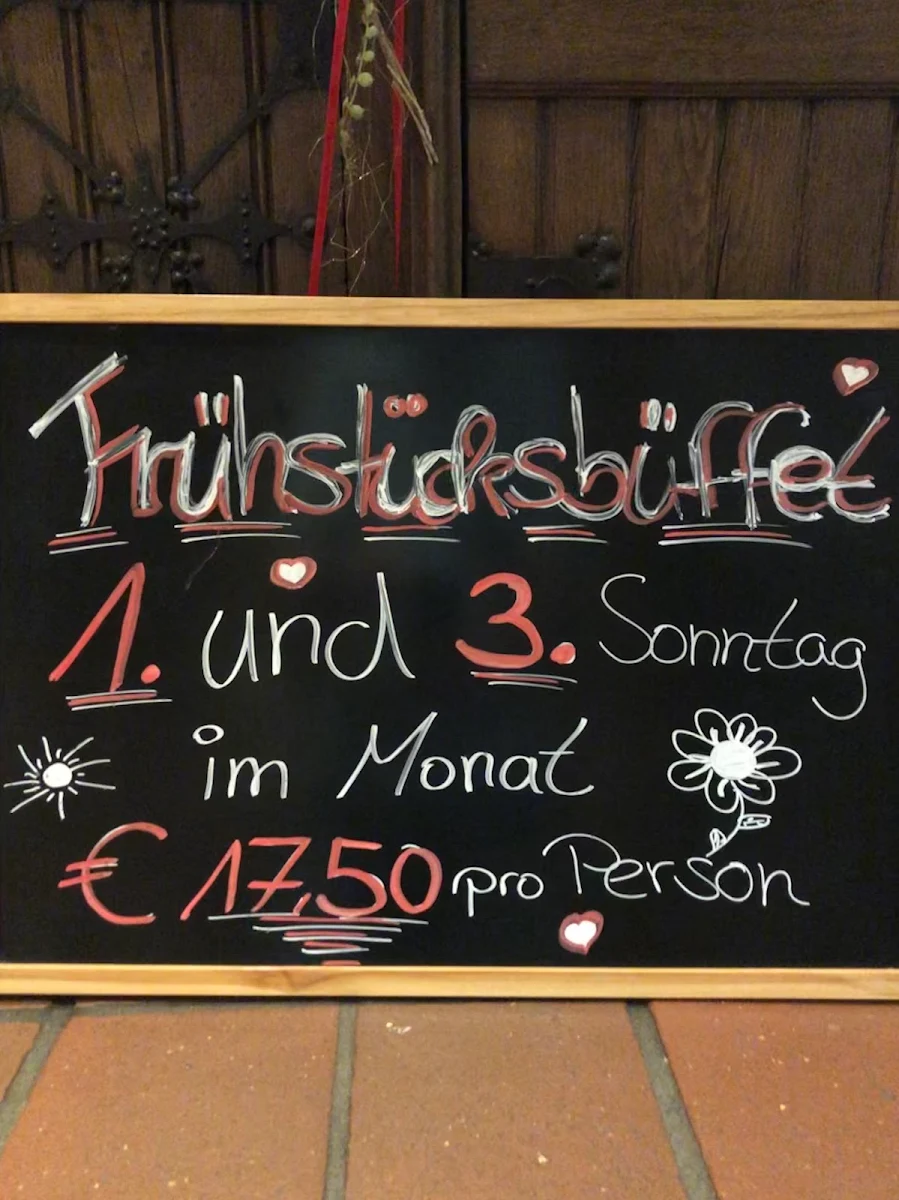 Frühstücksbüffet
1. und 3. Sonntag
im Monat
€ 17,50 pro Person